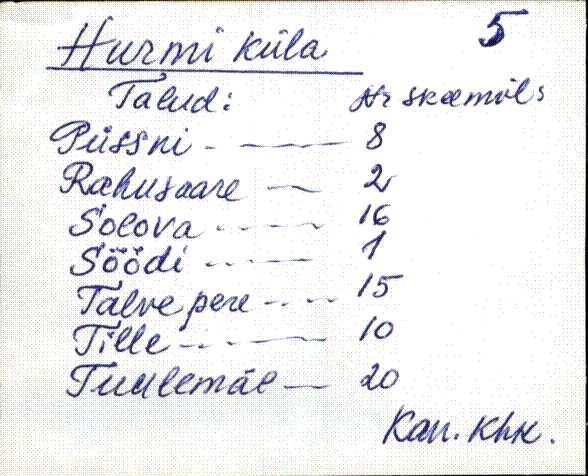 Hurmi küla 5
Talud: Nr skeemil:
Püssni - 8
Rahusaare - 2
Solova - 16
Söödi - 1
Talve pere - 15
Tille - 10
Tuulemäe - 20
Kan. Khk.